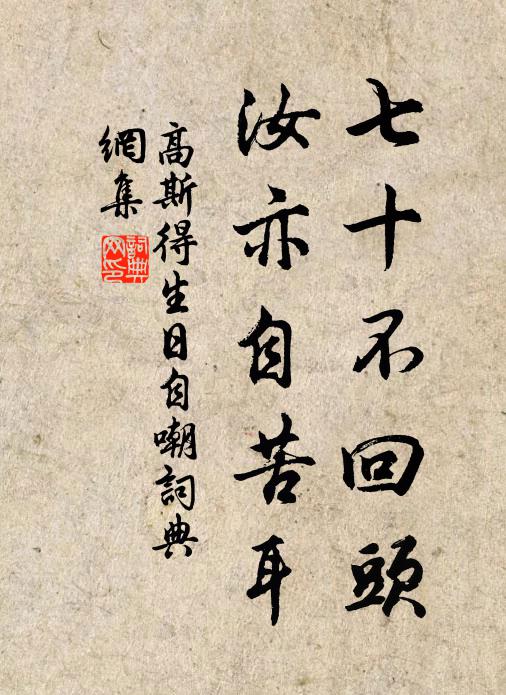 七十不回頭
汝亦自苦耳
高斯得生日自嘲詞典
網集
詞典
网印